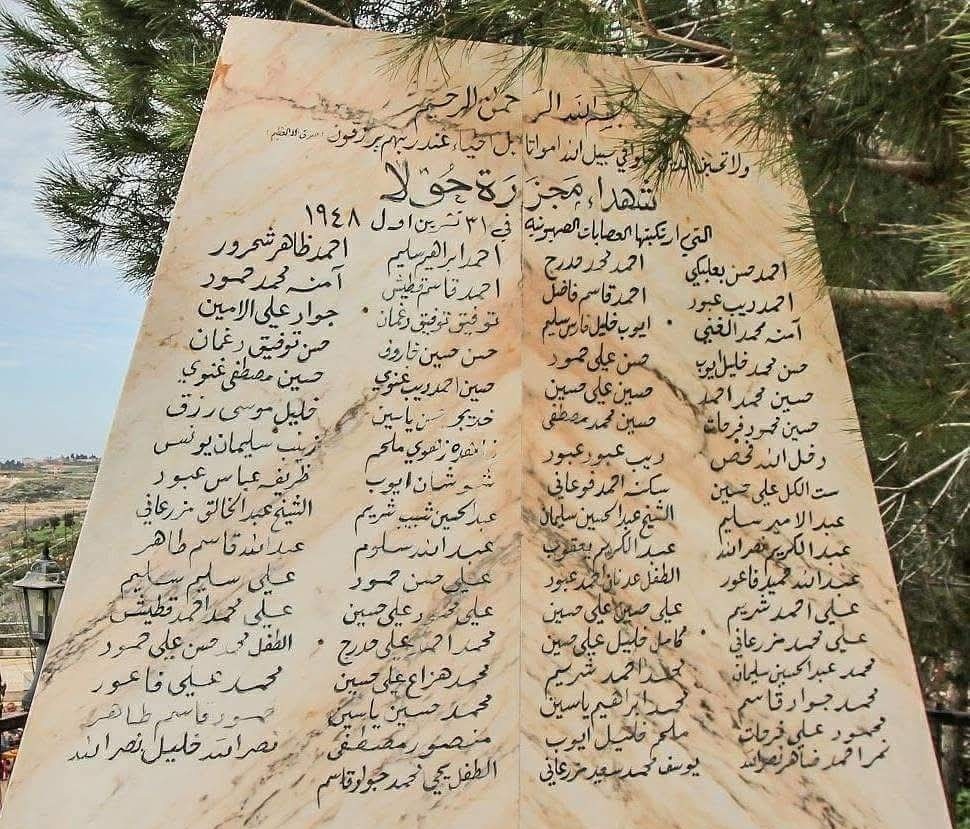 بسم الله الرحمن الرحيم
ولا تحسبن الذين قتلوا في سبيل الله امواتا بل احياء عند ربهم يرزقون (صدق الله العظيم)
شهداء مجزرة حولا
التي ارتكبتها العصابات الصهيونية في ٣١ تشرين اول ١٩٤٨
احمد حسن بعلبكي احمد محمود مدرج احمد ابراهيم سليم احمد ظاهر شحرور
احمد ديب عبود احمد قاسم فاضل احمد قاسم قطيش آمنه محمد حمود
آمنه محمد الغبي ايوب خليل فارس سليم توفيق توفيق دغمان جواد علي الامين
حسن محمد خليل ايوب حسن علي حمود حسن حسين فاروق حسن توفيق دغمان
حسين محمد احمد حسين علي حسين حسين احمد ديب غنوي حسين مصطفى غنوي
حسين محمود فرحات حسين محمد مصطفى خديجه حسن ياسين خليل موسى رزق
دخل الله فحص ديب عبود عبود ملحم زينب سليمان يونس
ست الكل علي حسين سكنه احمد قوعاني شوشان ايوب ظريفه عباس عبود
عبد الامير سليم الشيخ عبد الحسين سليمان عبد الحسين شبيب شريم الشيخ عبد الخالق مزرعاني
عبد الكريم نصر الله عبد الكريم يعقوب عبد الله سلوم عبد الله قاسم طاهر
عبد الله حميد فاعور الطفل عدنان احمد عبود علي حسن حمود علي سليم سليم
علي احمد شريم علي حسين علي حسين علي محمود علي حسين علي محمد احمد قطيش
علي محمد مزرعاني كامل خليل علي حسين محمد احمد علي مدرج الطفل محمد حسن علي حمود
محمد عبد الحسين سليمان محمد احمد شريم محمد هزاع علي حسين محمد علي فاعور
محمد جواد قاسم محمد ابراهيم ياسين محمد حسين ياسين محمود قاسم طاهر
محمود علي فرحات ملحم خليل ايوب منصور مصطفى نصر الله خليل نصر الله
نمر احمد ضاهر نصر الله يوسف محمد سعيد مزرعاني الطفل يحي محمد جواد قاسم